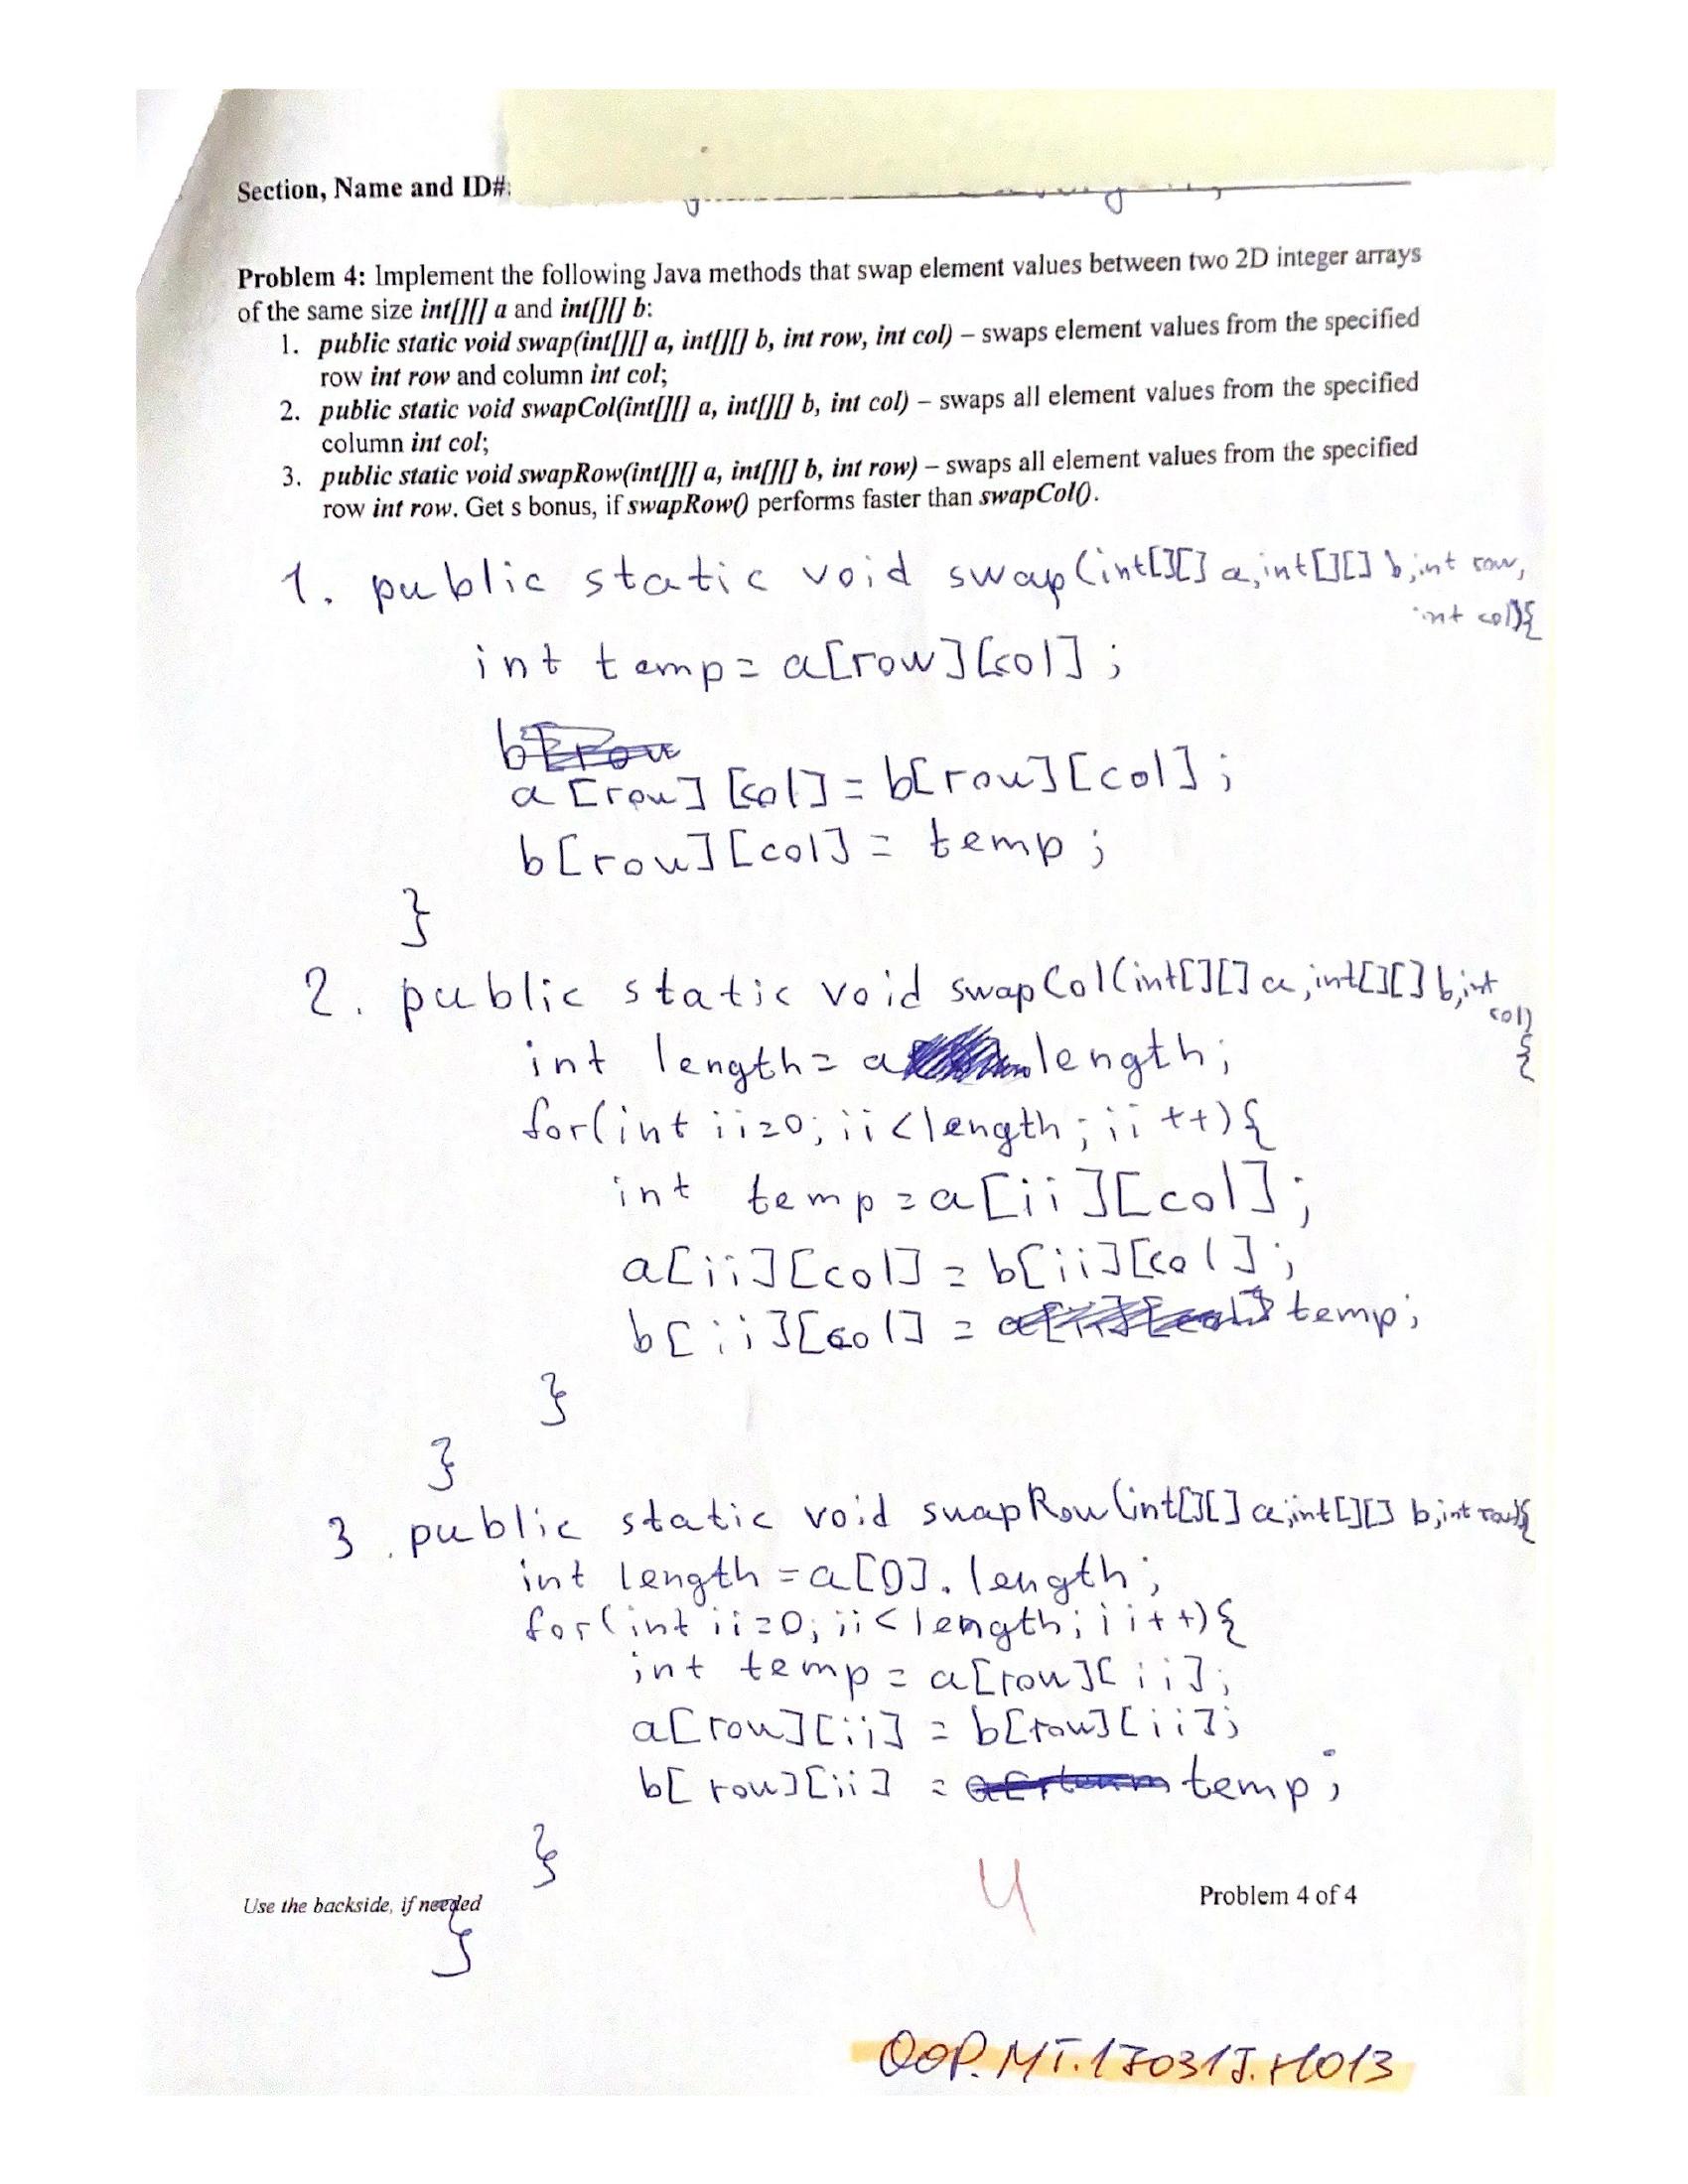 Section, Name and ID#:
Problem 4: Implement the following Java methods that swap element values between two 2D integer arrays
of the same size int[][] a and int[][] b:
1. public static void swap(int[][] a, int[][] b, int row, int col) – swaps element values from the specified
row int row and column int col;
2. public static void swapCol(int[][] a, int[][] b, int col) – swaps all element values from the specified
column int col;
3. public static void swapRow(int[][] a, int[][] b, int row) – swaps all element values from the specified
row int row. Get s bonus, if swapRow() performs faster than swapCol().
1. public static void swap(int[][] a, int[][] b, int row,
int col){
int temp = a[row][col];
b[row
a[row][col] = b[row][col];
b[row][col] = temp;
}
2. public static void swapCol(int[][] a, int[][] b, int
col)
{
int length = a length;
for(int ii=0; ii<length; ii++){
int temp = a[ii][col];
a[ii][col] = b[ii][col];
b[ii][col] = temp;
}
}
3. public static void swapRow(int[][] a, int[][] b, int row){
int length = a[0].length;
for(int ii=0; ii<length; ii++){
int temp = a[row][ii];
a[row][ii] = b[row][ii];
b[row][ii] = temp;
}
4
Use the backside, if needed
Problem 4 of 4
}
OOP.MT.170317.H013